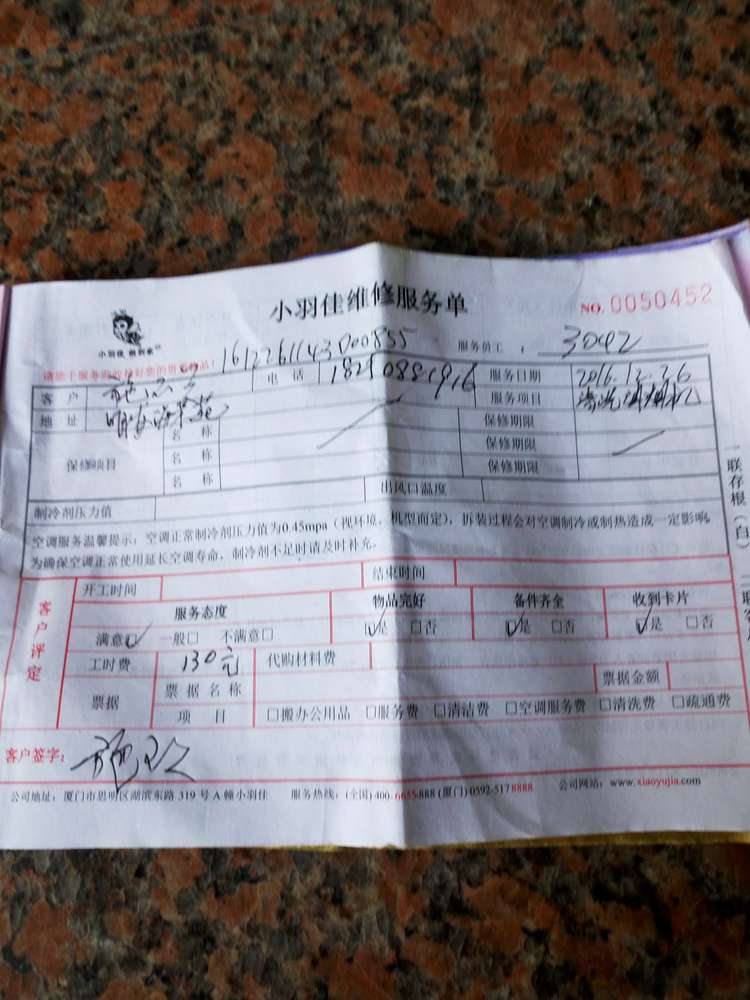 小羽佳维修服务单
NO. 0050452
小羽佳
1612261143000855
服务员工: 3042
请您于服务期效最好您的贵重物品!
客户 电话 服务日期 2016.12.26
地址 服务项目 清洗油烟机
保修项目 名称 保修期限
名称 保修期限
名称 保修期限
制冷剂压力值 出风口温度
空调服务温馨提示:空调正常制冷剂压力值为0.45mpa(视环境、机型而定),拆装过程会对空调制冷或制热造成一定影响,
为确保空调正常使用延长空调寿命,制冷剂不足时请及时补充。
一联存根(白)
客户评定
开工时间 结束时间
服务态度 物品完好 备件齐全 收到卡片
满意☑ 一般□ 不满意□ ☑是 □否 ☑是 □否 ☑是 □否
工时费 130元 代购材料费
票据 票据名称 票据金额
项目 □搬办公用品 □服务费 □清洁费 □空调服务费 □清洗费 □疏通费
客户签字:
公司地址:厦门市思明区湖滨东路319号A幢小羽佳 服务热线:(全国)400-6655888 (厦门)0592-5178888 公司网站:www.xiaoyujia.com